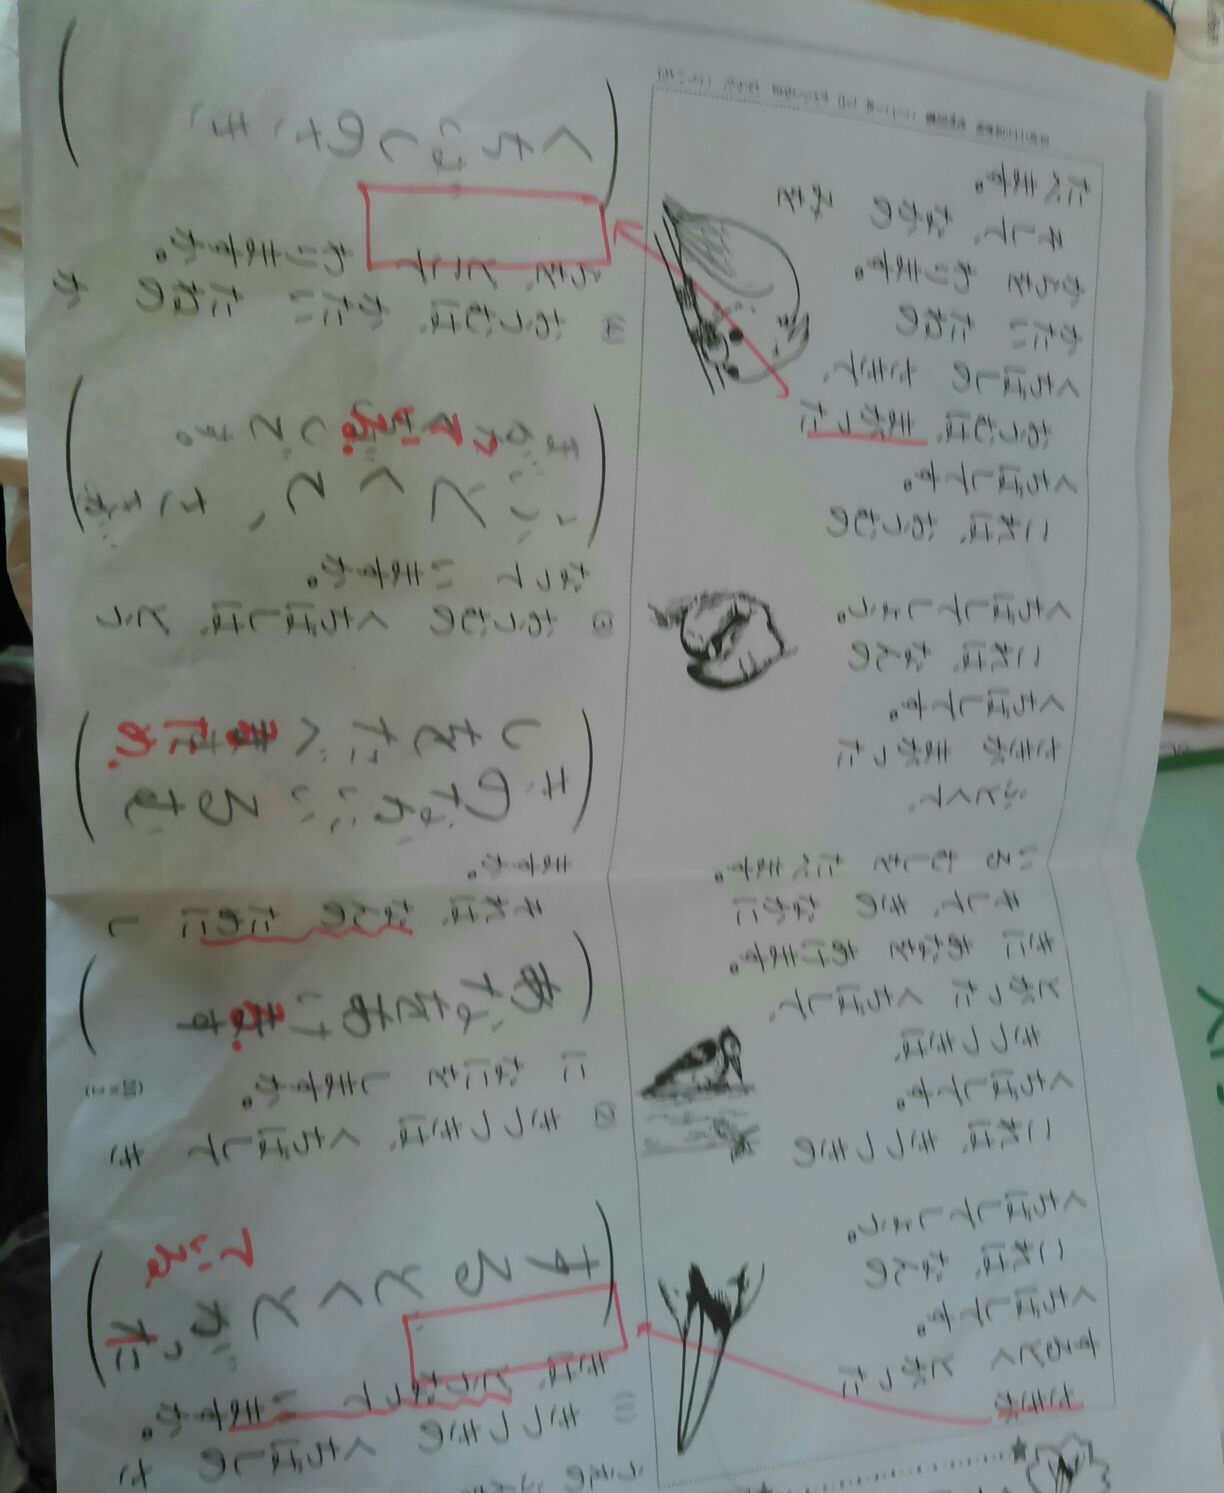 さきが
するどく とがった
くちばしです。
これは、なんの
くちばしでしょう。
これは、きつつきの
くちばしです。
きつつきは、
とがった くちばしで、
きに あなを あけます。
そして、きの なかに
いる むしを たべます。
ふとくて、
さきが まがった
くちばしです。
これは、なんの
くちばしでしょう。
これは、おうむの
くちばしです。
おうむは、まがった
くちばしの さきで、
かたい たねの
からを わります。
そして、なかの みを
たべます。
(1) きつつきの くちばしの さ
きは、どうなって いますか。
するどくと
がった
でいる
(2) きつつきは、くちばしで き
に なにを しますか。
あなをあけます
る。
それは、なんの ために し
ますか。
きのなかにいるむ
しをたべます
るため。
(3) おうむの くちばしは、どう
なって いますか。
ふとくて、さきが
まがっています。
でいる。
(4) おうむは、かたい たねの か
らを どこで わりますか。
くちばしのさき